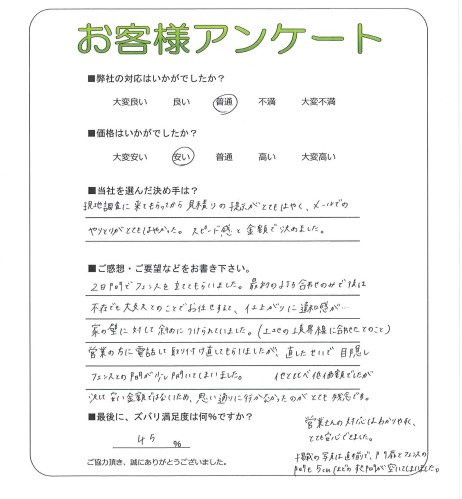 お客様アンケート
■弊社の対応はいかがでしたか？
大変良い 良い 普通 不満 大変不満
■価格はいかがでしたか？
大変安い 安い 普通 高い 大変高い
■当社を選んだ決め手は？
現地調査に来てもらってから見積りの提示がとてもはやく、メールでの
やりとりがとてもはやかった。スピード感と金額で決めました。
■ご感想・ご要望などをお書き下さい。
2日間でフェンスを立ててもらいました。最初のより合わせのみで後は
不在でも大丈夫とのことでお任せすると、仕上がりに違和感が…
家の壁に対して斜めにつけられていました。(土地の境界線に合わせたとのこと)
営業の方に電話して取り付け直してもらいましたが、直したせいで目隠し
フェンスとの間が少し開いてしまいました。 他と比べ低価額でしたが
決して安い金額ではないため、思い通りに行かなかったのがとても残念です。
■最後に、ズバリ満足度は何%ですか？
45 %
営業さんの対応はわかりやすく、
とても安心できました。
ご協力頂き、誠にありがとうございました。
掲載の写真は直前で、門扉とフェンスの
間も5cmほどの間が空いてしまいました。